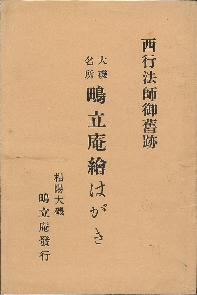 西行法師御舊跡
大磯名所
鴫立庵繪はがき
相陽大磯
鴫立庵發行